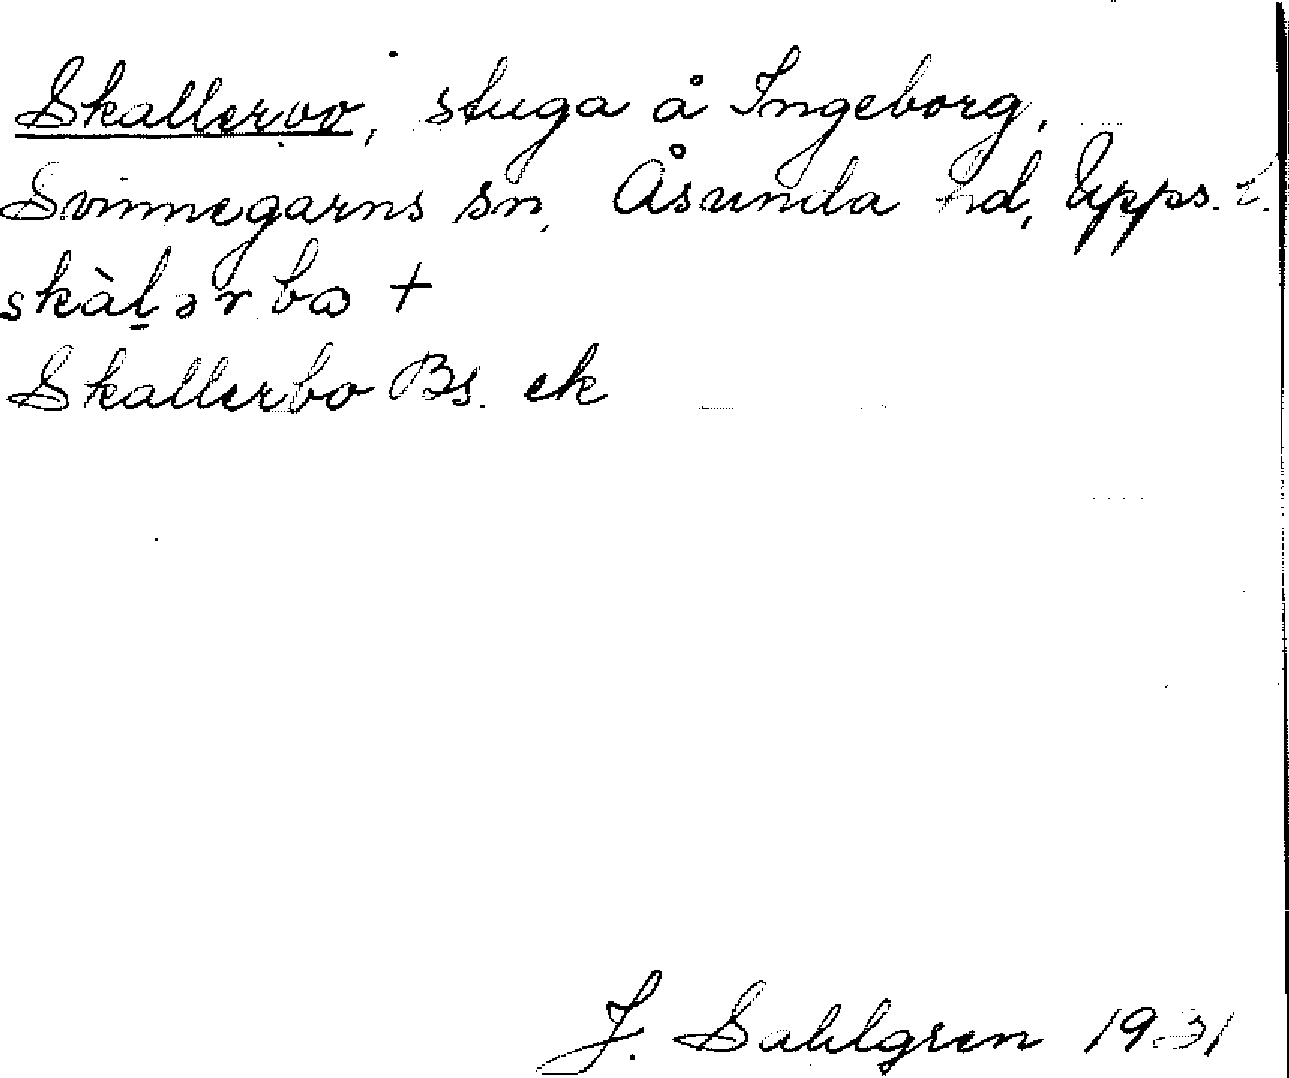 Skallerbo, stuga å Ingeborg,
Svinnegarns sn, Åsunda hd, Upps. l.
skàl̠ərbω +
Skallerbo Bs. ek
J. Sahlgren 1931